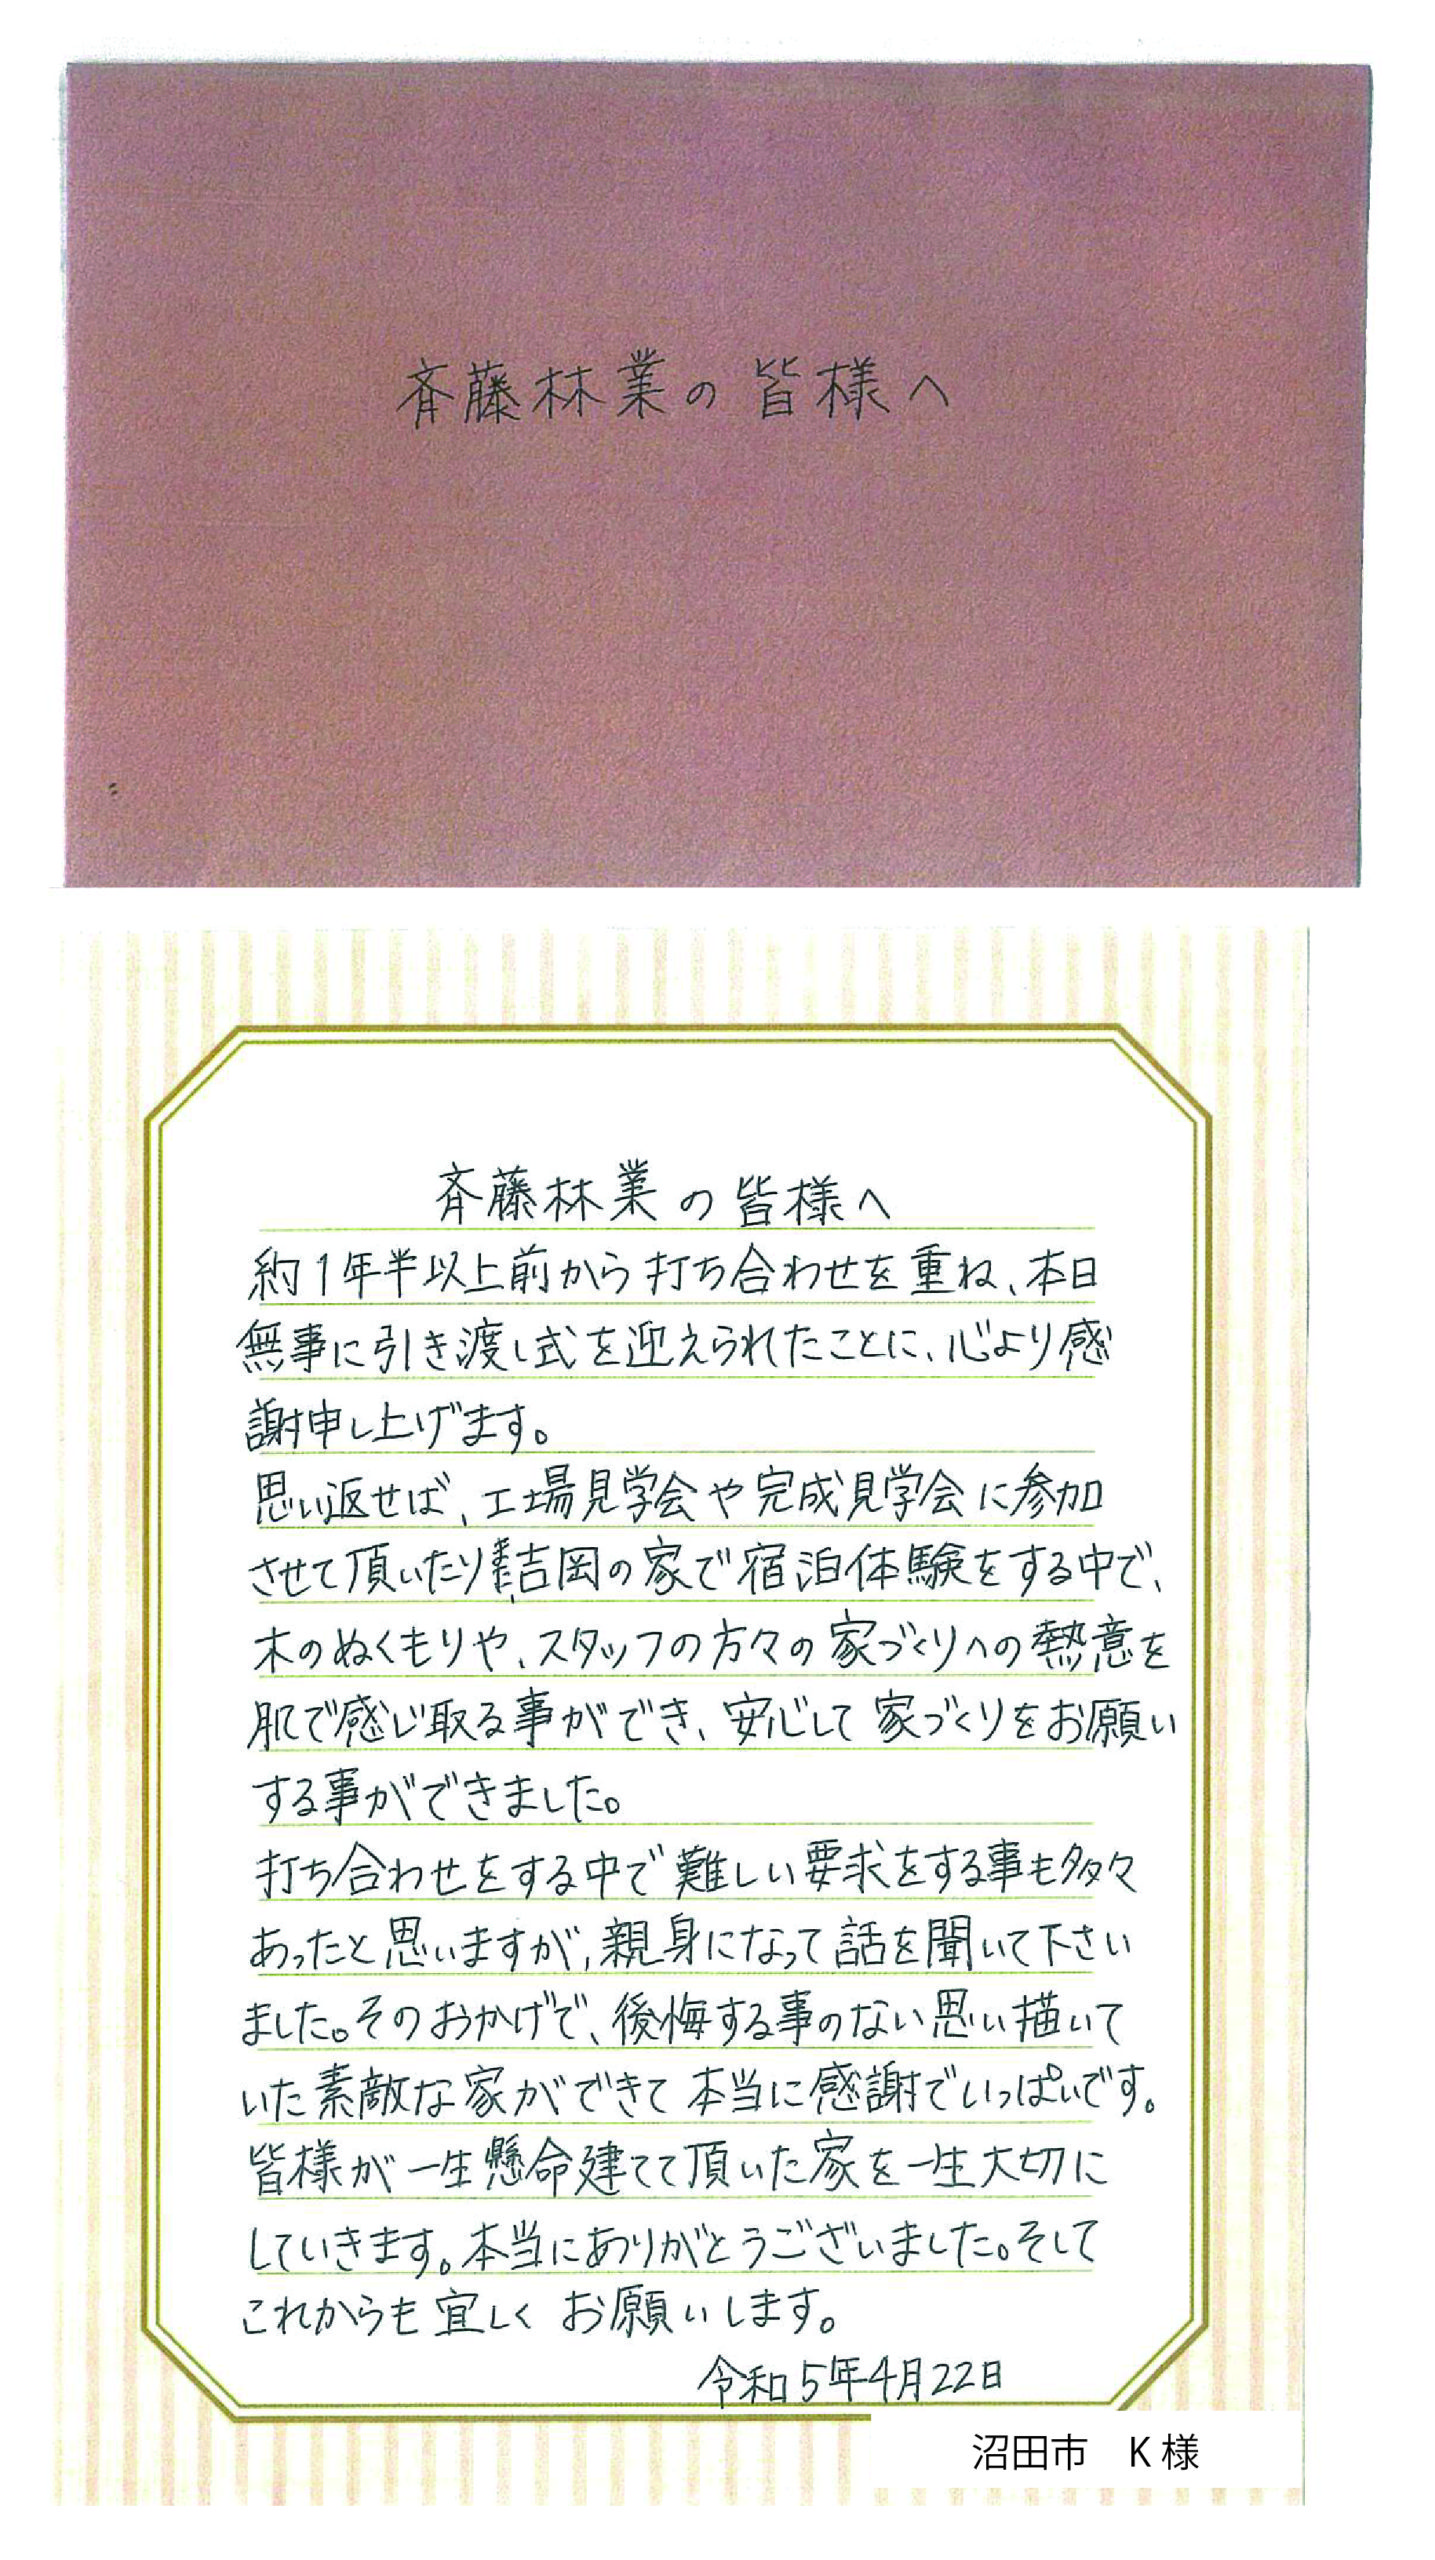 斉藤林業の皆様へ
斉藤林業の皆様へ
約1年半以上前から打ち合わせを重ね、本日
無事に引き渡し式を迎えられたことに、心より感
謝申し上げます。
思い返せば、工場見学会や完成見学会に参加
させて頂いたり、吉岡の家で宿泊体験をする中で、
木のぬくもりや、スタッフの方々の家づくりへの熱意を
肌で感じ取る事ができ、安心して家づくりをお願い
する事ができました。
打ち合わせをする中で難しい要求をする事も多々
あったと思いますが、親身になって話を聞いて下さい
ました。そのおかげで、後悔する事のない思い描いて
いた素敵な家ができて本当に感謝でいっぱいです。
皆様が一生懸命建てて頂いた家を一生大切に
していきます。本当にありがとうございました。そして
これからも宜しくお願いします。
令和5年4月22日
沼田市　K様